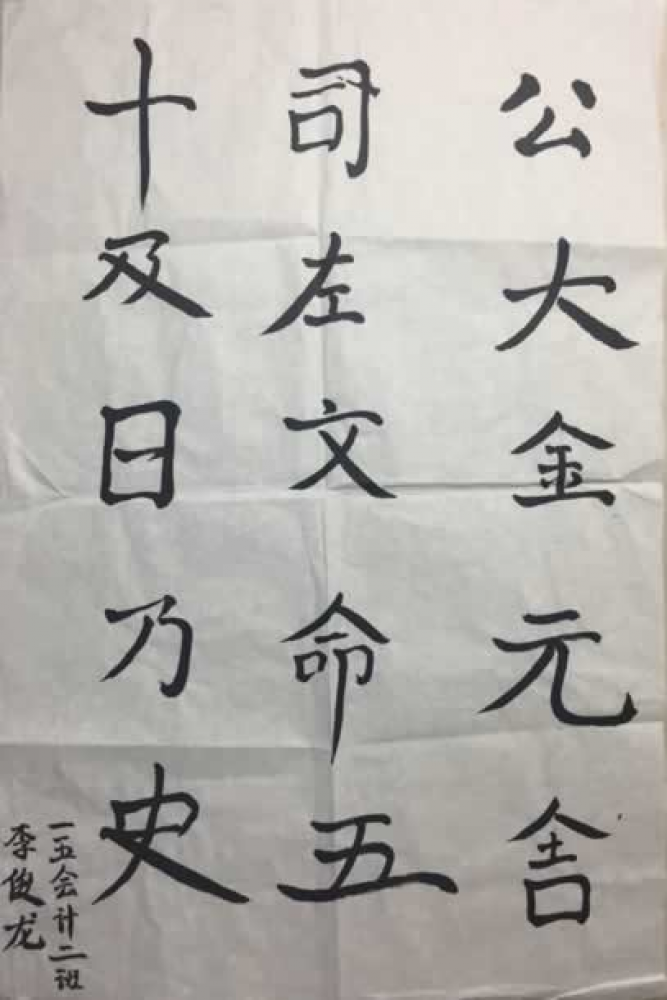 公大金元舍
司左文命五
十及日乃史
一五会计二班
李俊龙